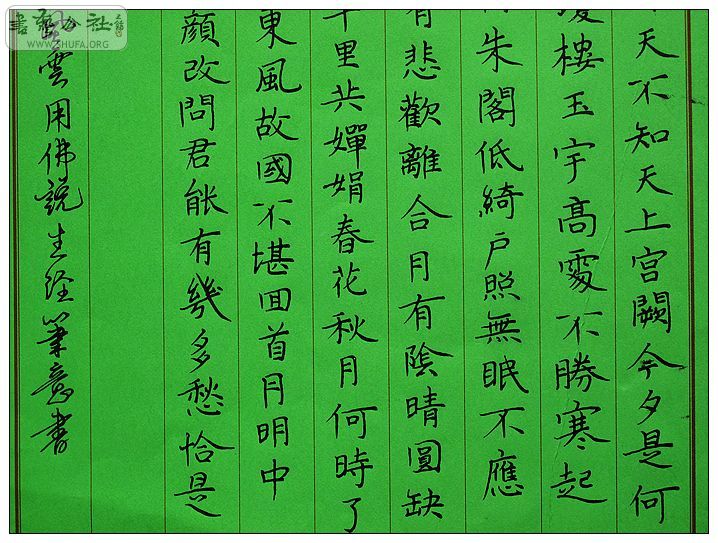 天不知天上宮闕今夕是何
樓玉宇高處不勝寒起
朱閣低綺戶照無眠不應
有悲歡離合月有陰晴圓缺
千里共嬋娟春花秋月何時了
東風故國不堪回首月明中
顏改問君能有幾多愁恰是
雲用佛說生經筆意書
WWW.SHUFA.ORG